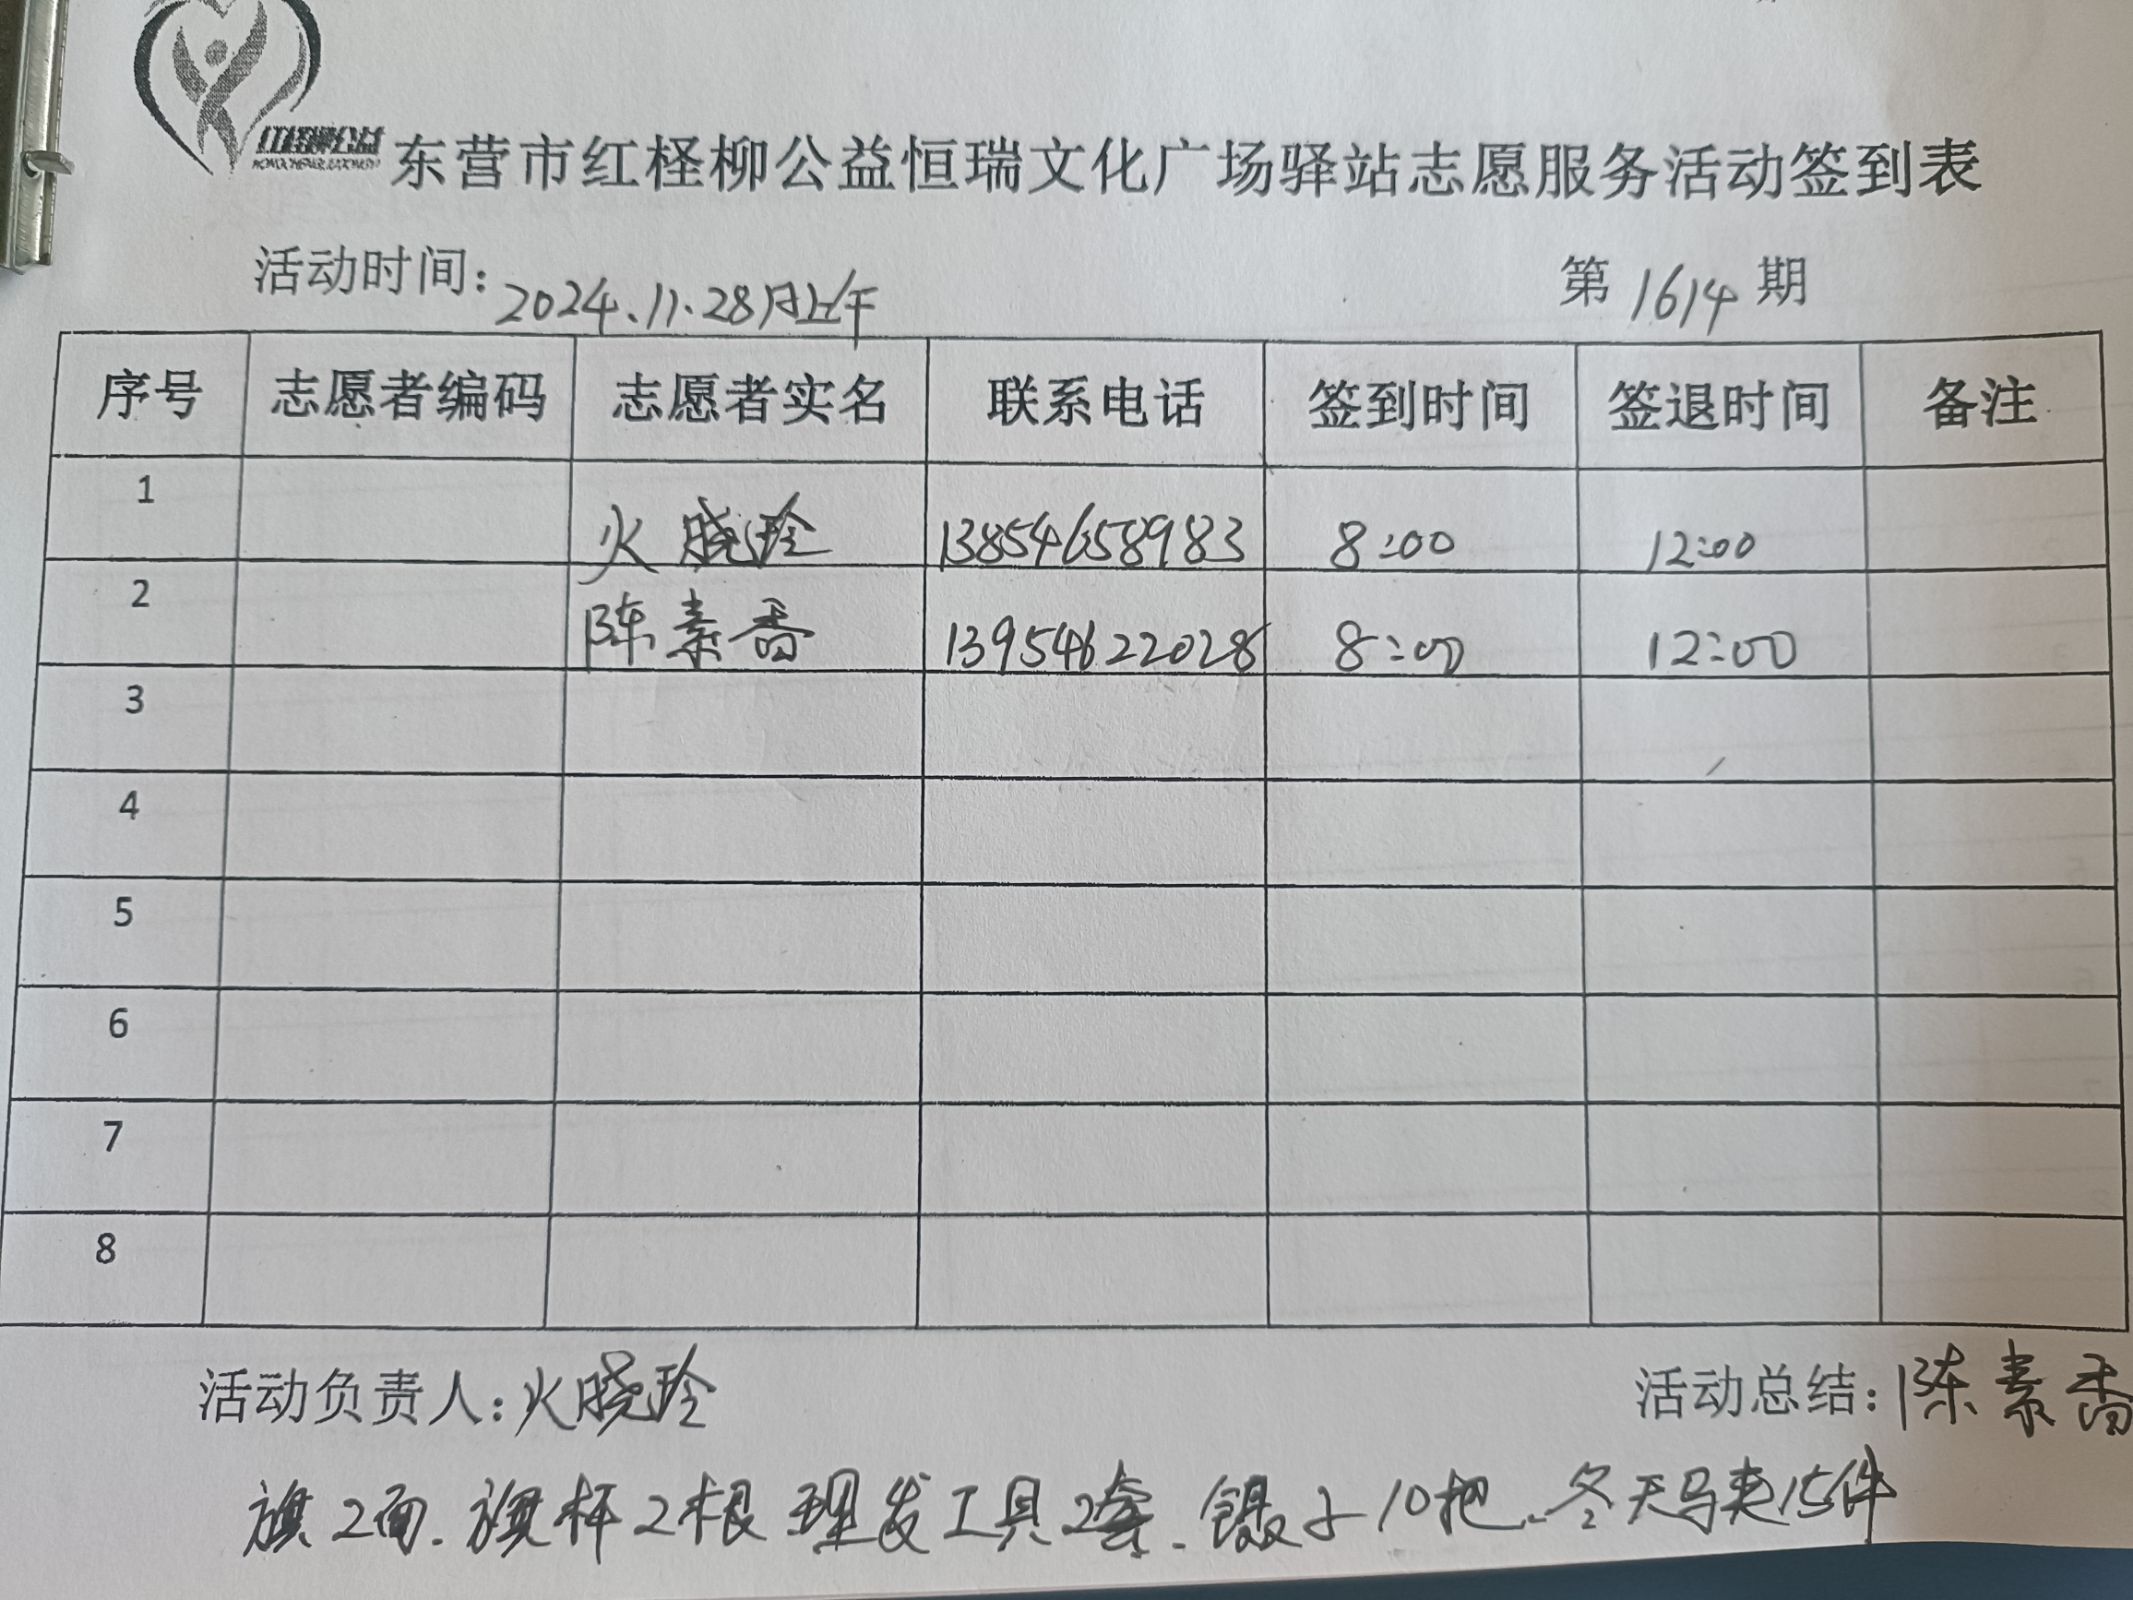 红柽柳公益
东营市红柽柳公益恒瑞文化广场驿站志愿服务活动签到表
活动时间: 2024.11.28日上午 第 1614 期
序号 志愿者编码 志愿者实名 联系电话 签到时间 签退时间 备注
1 火晓玲 13854658983 8:00 12:00
2 陈素香 13954622028 8:00 12:00
3
4
5
6
7
8
活动负责人: 火晓玲 活动总结: 陈素香
旗2面.旗杆2根 理发工具2套.镊子10把.冬天马夹15件